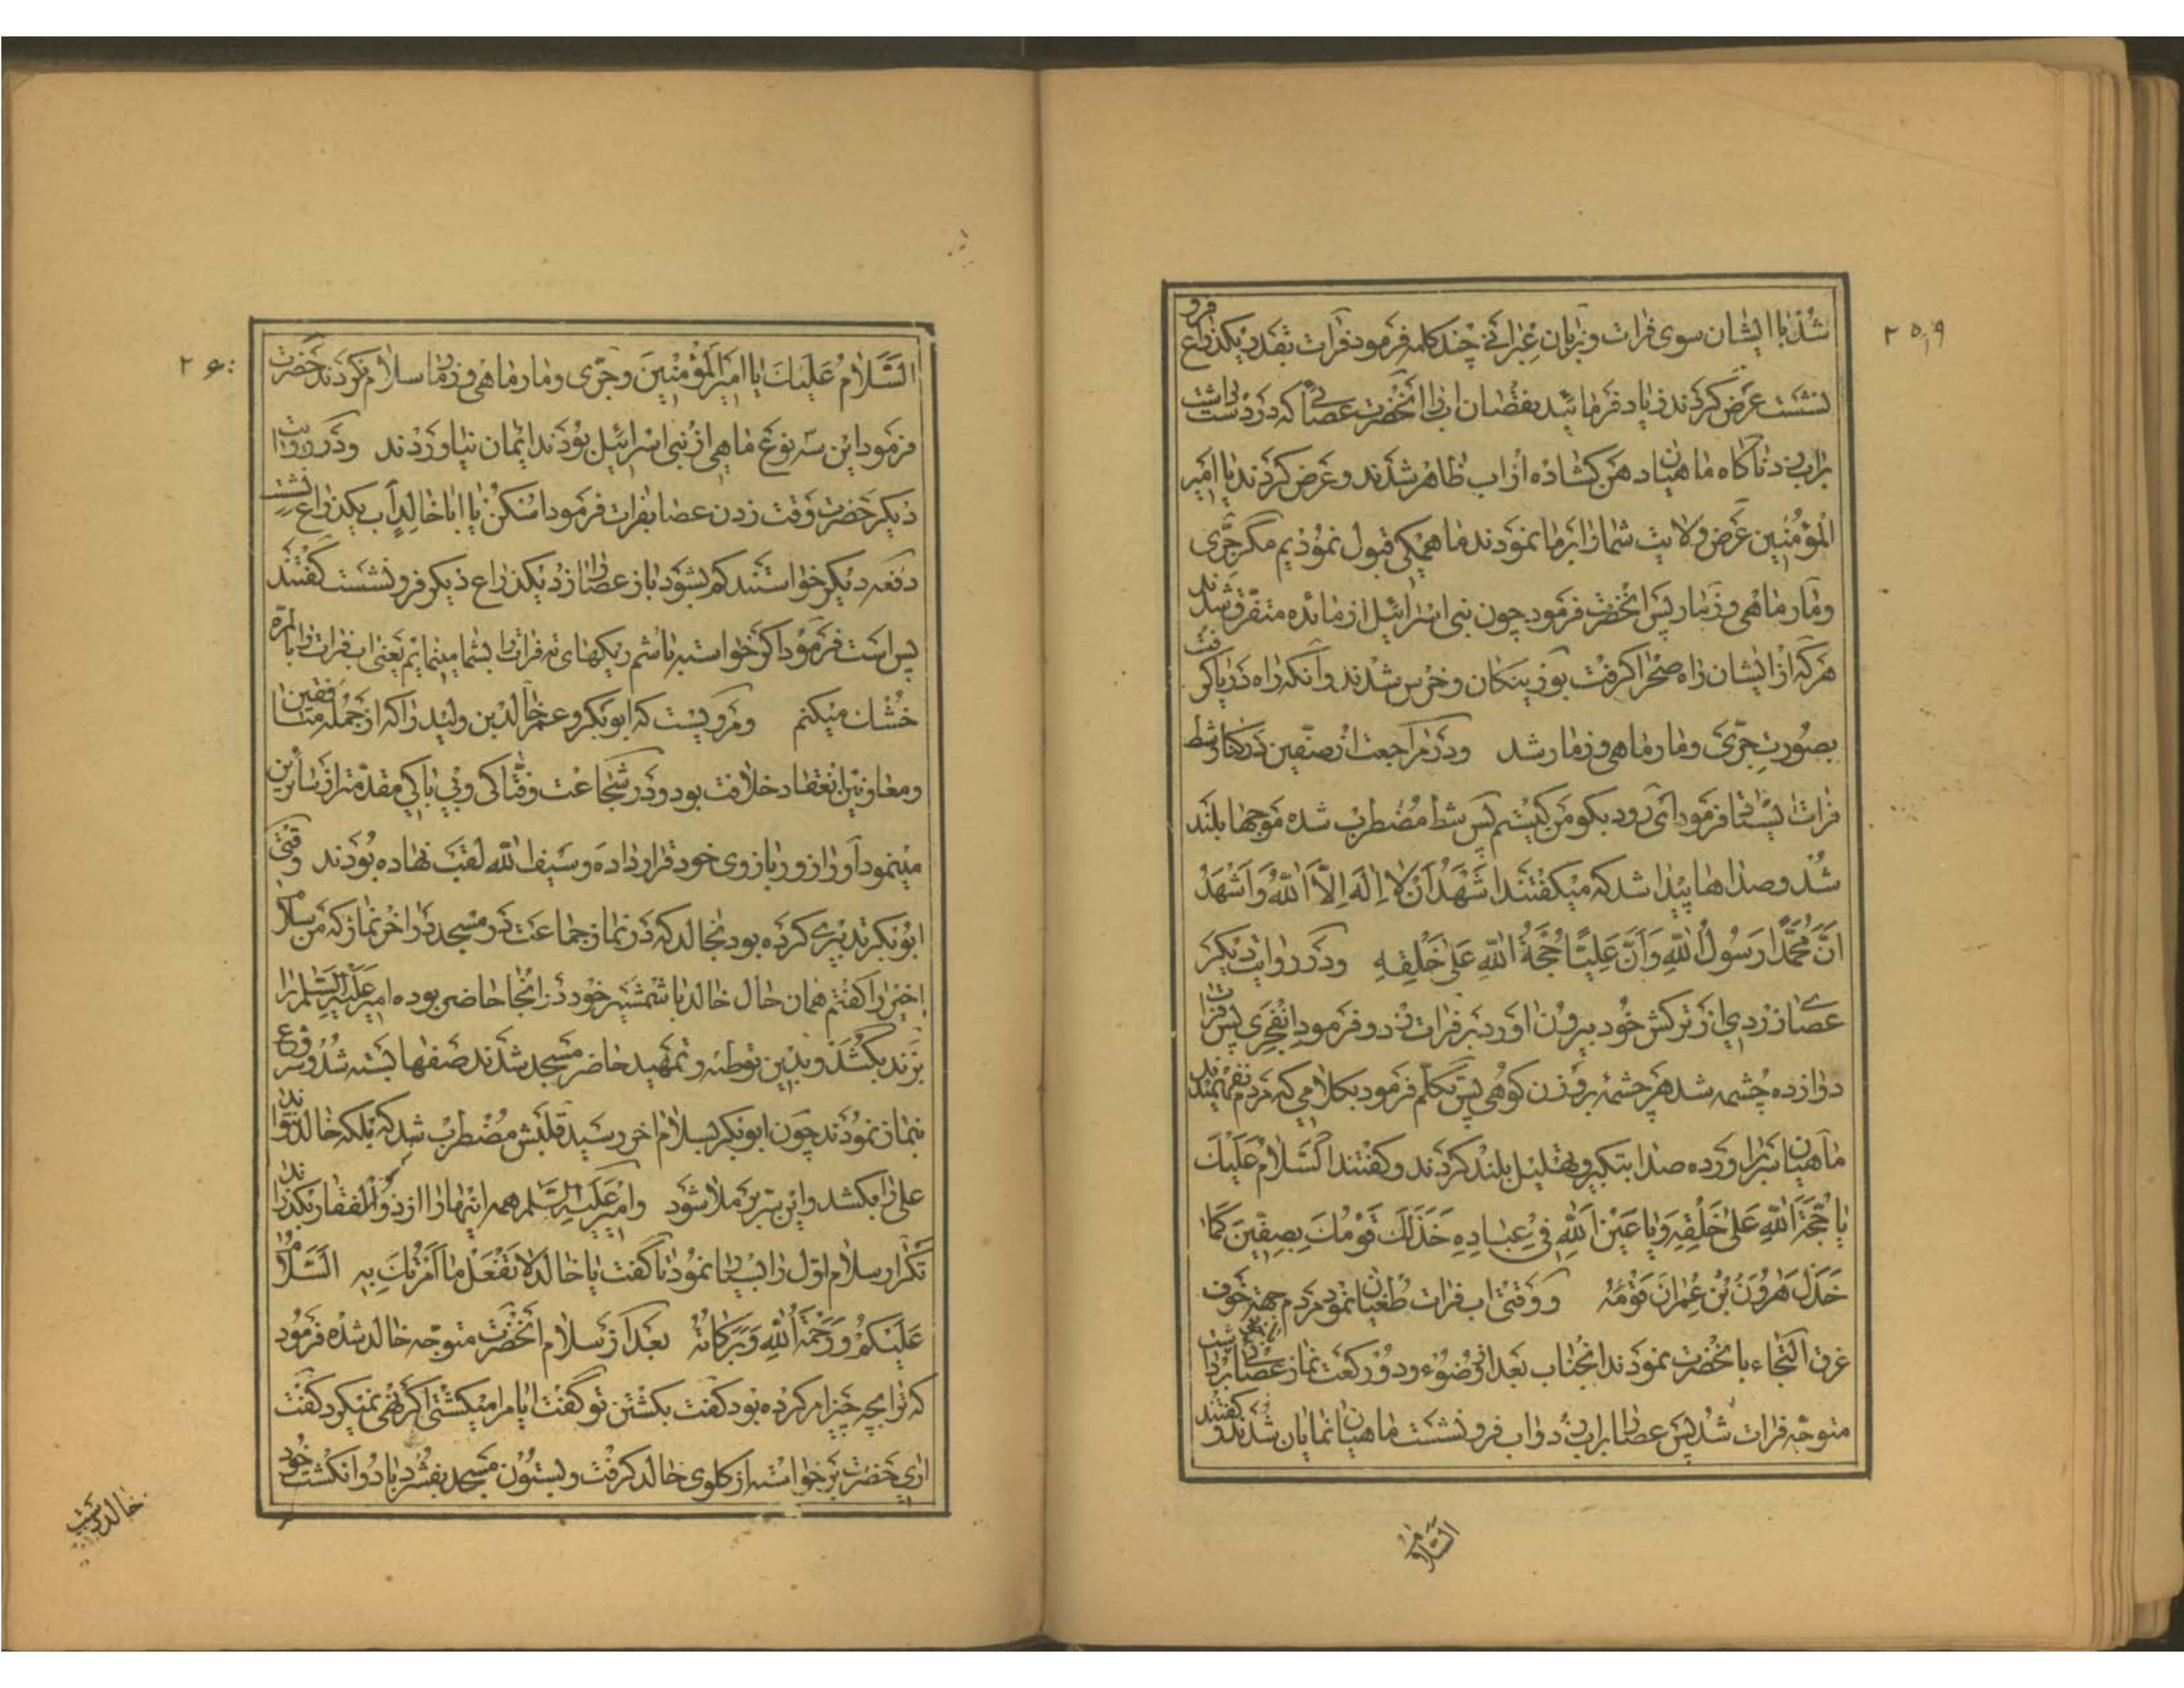 ۲۵۹
شد با ایشان سوی فرات و بزبان عبرانی چند کلمه فرمود فرات بقدر یکذراع فرو
نشست عرض کردند زیاد فرمائید بنقصان اب انحضرت عصائی که در دست داشت
براب زد ناگاه ماهیان دهن کشاده از اب ظاهر شدند و عرض کردند یا امیر
المؤمنین عرض ولایت شما را بر ما نمودند ما همگی قبول نمودیم مگر جری
و مار ماهی و زمار پس انحضرت فرمود چون بنی اسرائیل از مائده متفرق شدند
هر که از ایشان راه صحرا گرفت بوزینگان و خرس شدند و آنکه راه دریا گرفت
بصورت جری و مار ماهی و زمار شد و در مراجعت از صفین در کنار شط
فرات بیستاد فرمود ای رود بگو من کیستم پس شط مضطرب شده موجها بلند
شد و صداها پیدا شد که میکفتند اَشْهَدُ اَنْ لا اِلهَ اِلاَّ اللهُ وَ اَشْهَدُ
اَنَّ مُحَمَّدًا رَسُولُ اللهِ وَاَنَّ عَلِيًّا حُجَّةُ اللهِ عَلی خَلْقِهِ و در روایت دیکر
عصا زردی از ترکش خود بیرون اورد بر فرات زد و فرمود انفجری پس فرات
دوازده چشمه شد هر چشمه بر وزن کوهی پس تکلم فرمود بکلامی که مردم نفهمیدند
ماهیان سر برآورده صدا بتکبیر و تهلیل بلند کردند و کفتند اَلسَّلامُ عَلَیْكَ
یا حُجَّةَ اللهِ عَلی خَلْقِهِ وَ یا عَیْنَ اللهِ فی عِبادِهِ خَذَلَكَ قَوْمُكَ بِصِفّینَ کَما
خَذَلَ هرُونَ بْنَ عِمْرانَ قَوْمُهُ و وقتی اب فرات طغیان نمود مردم جهة خوف
غرق التجاء بانحضرت نمودند انجناب بعد از وضوء و دو رکعت نماز عصائی برداشت
متوجه فرات شد پس عصا را براب زد و اب فرو نشست ماهیان نمایان شدند و کفتند
السلام
۲۶۰
السَّلامُ عَلَیْكَ یا امیرَ المُؤْمِنینَ و جری و مار ماهی و زمار سلام نکردند حضرت
فرمود این سه نوع ماهی از بنی اسرائیل بودند ایمان نیاوردند و در روایت
دیکر حضرت وقت زدن عصا بفرات فرمود اسکن یا ابا خالد آب یکذراع نشست
دفعه دیکر خواستند کم بشود باز عصا را زد یکذراع دیکر فرو نشست کفتند
بس است فرمود اکر خواسته باشم ریکهای ته فرات را بشما مینمایم یعنی اب فرات را بالمره
خشک میکنم و مرویست که ابوبکر و عمر خالد بن ولید را که از جمله منافقین
و معاونین انعقاد خلافت بود و در شجاعت و فتاکی و بی باکی مقدمتر از سائرین
مینمود آورا زور بازوی خود قرار داده و سیف الله لقب نهاده بودند وقتی
ابوبکر تدبیری کرده بود بخالد که در نماز جماعت در مسجد در اخر نماز که من سلام
اخیر را کفتم همان حال خالد با شمشیر خود در انجا حاضر بوده امیر علیه السلم را
بزند بکشد و بدین توطئه و تمهید حاضر مسجد شدند صفها بسته شد و شروع
بنماز نمودند چون ابوبکر بسلام اخر رسید قلبش مضطرب شد که بلکه خالد نتواند
علی را بکشد و این سر برملا شود و امیر علیه السلم همه اینها را از ذوالفقار بکذراند
تکرار سلام اول را بسیار نمود تا گفت یا خالد لا تَفْعَلْ ما اَمَرْتُكَ بِهِ السَّلامُ
عَلَیْکُمْ وَ رَحْمَةُ اللهِ وَ بَرَکاتُهُ بعد از سلام انحضرت متوجه خالد شده فرمود
که ترا بچه چیز امر کرده بود کفت بکشتن تو گفت ایا مرا میکشتی اکر نهی نمیکرد کفت
اری حضرت برخواسته از کلوی خالد کرفت و بستون مسجد بفشرد با دو انکشت خود
خالد